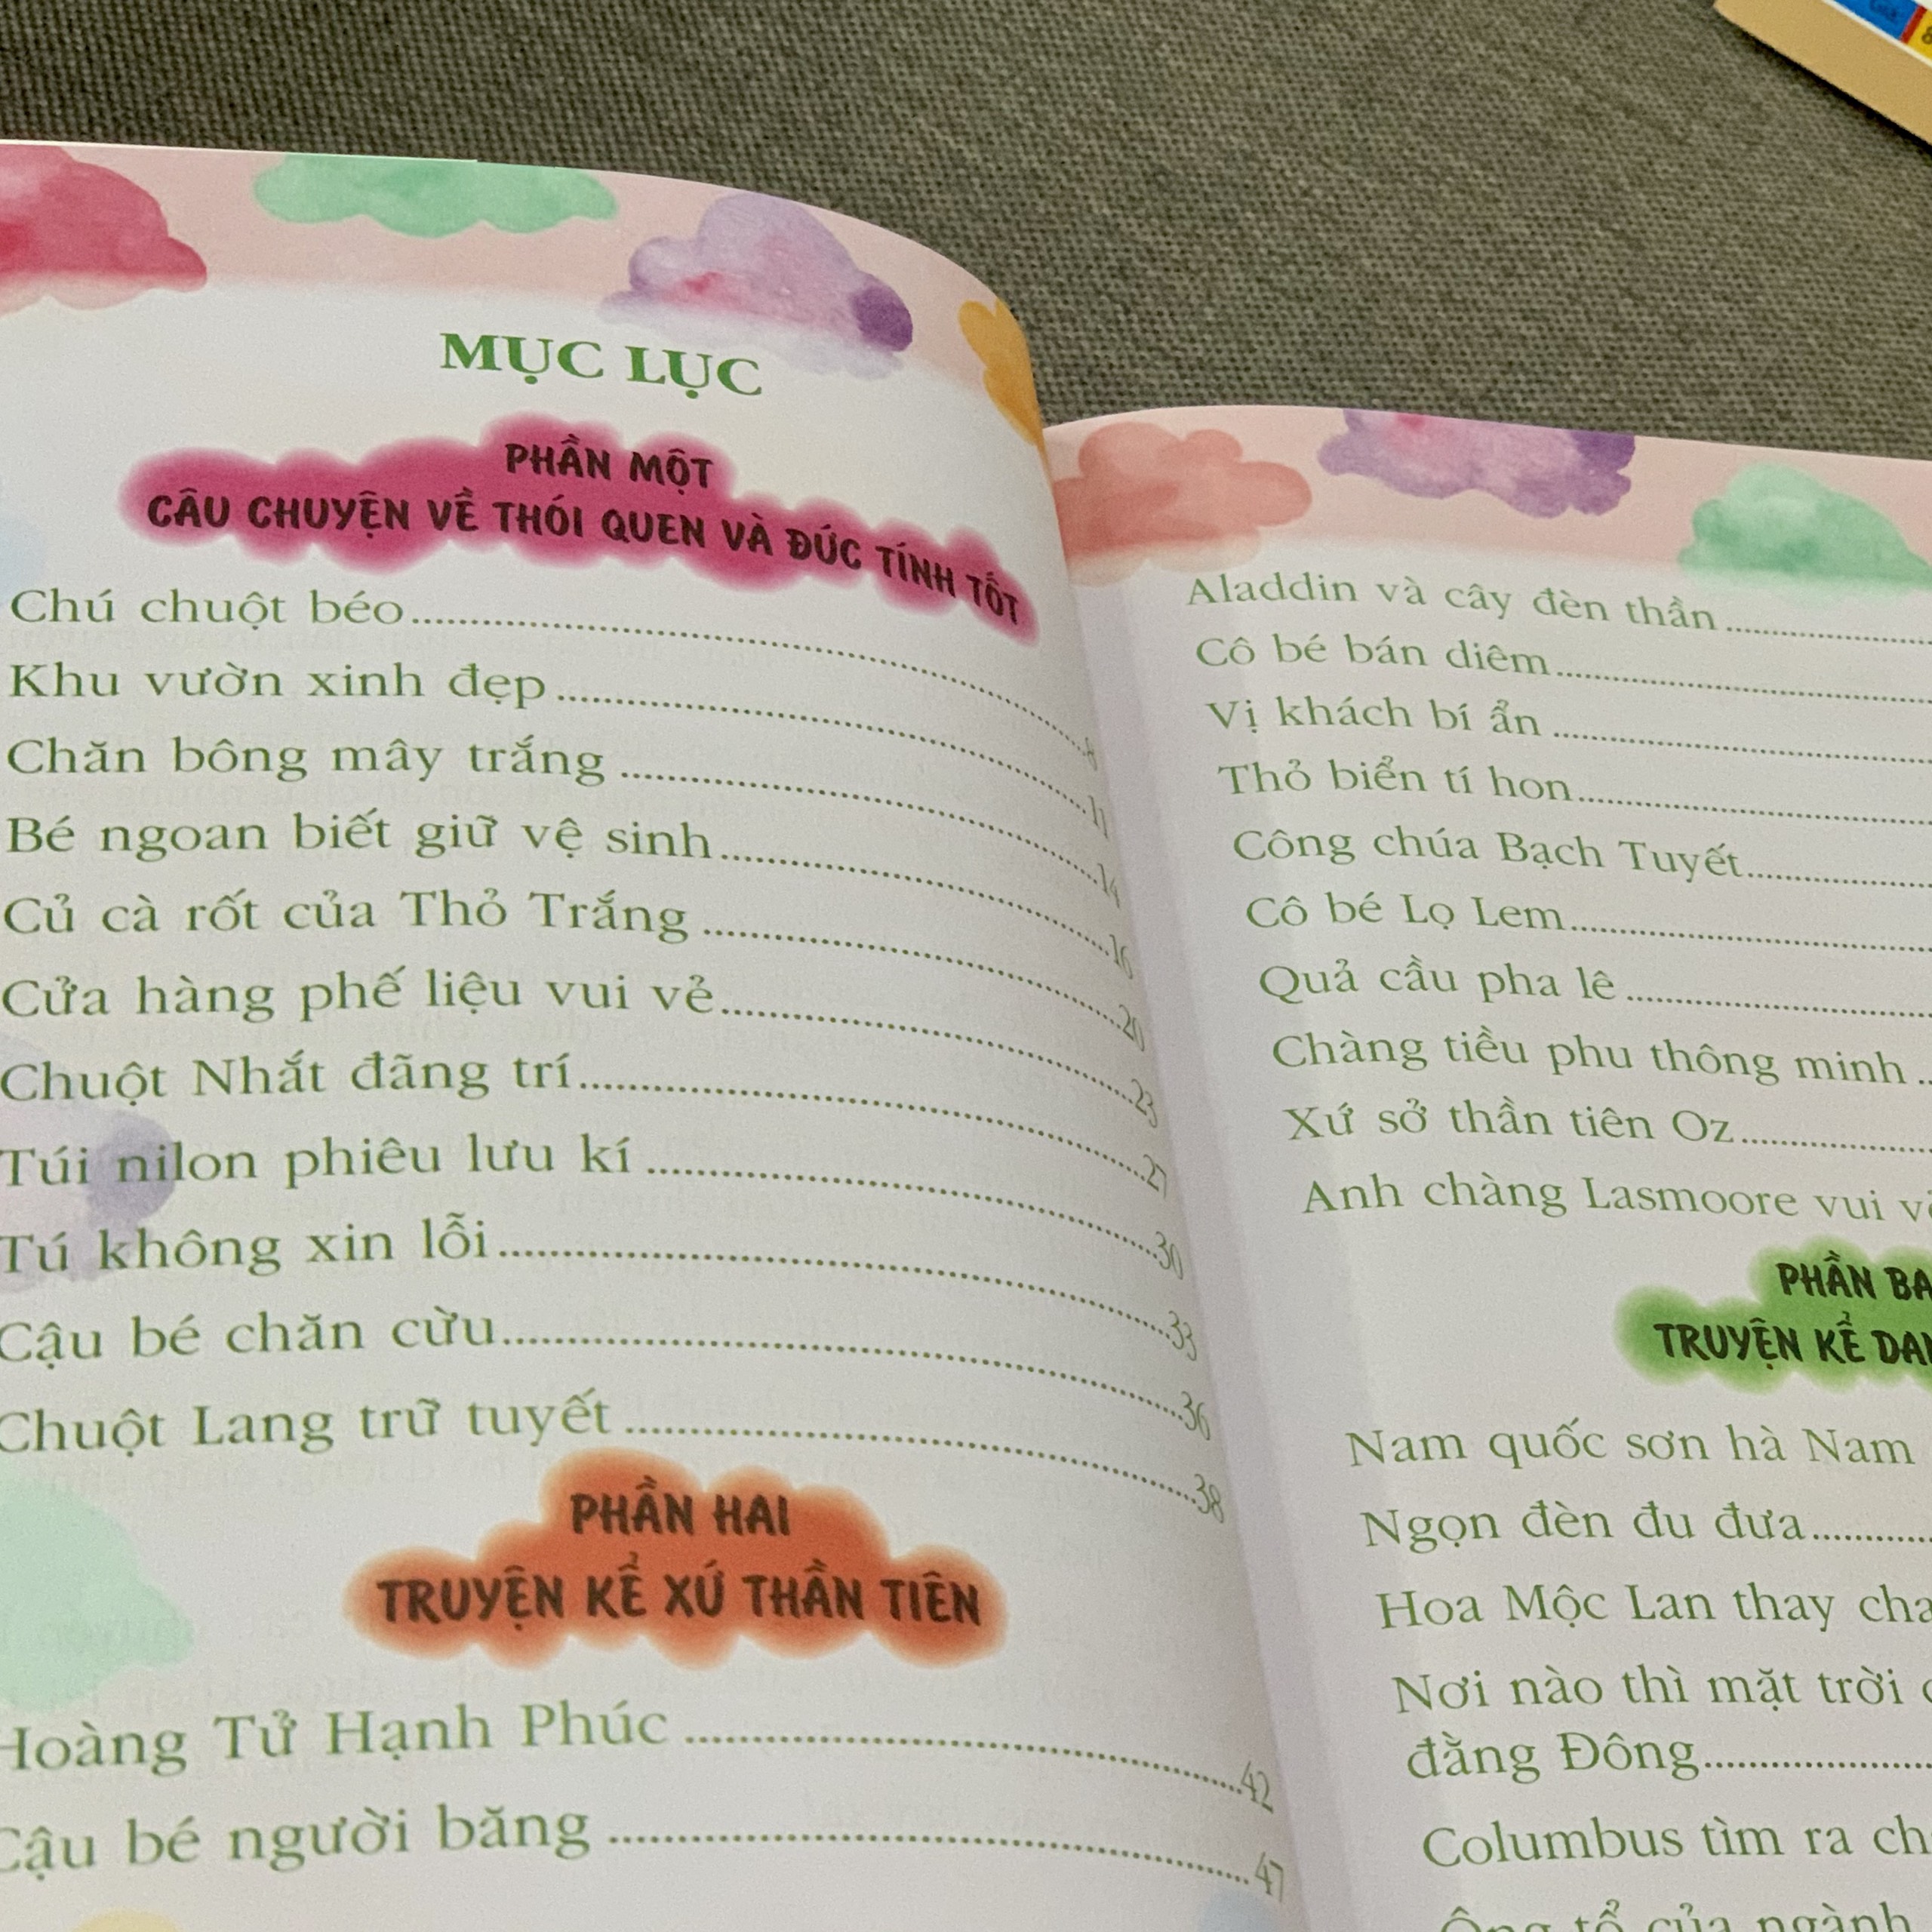 MỤC LỤC
PHẦN MỘT
CÂU CHUYỆN VỀ THÓI QUEN VÀ ĐỨC TÍNH TỐT
Chú chuột béo 8
Khu vườn xinh đẹp 11
Chăn bông mây trắng 14
Bé ngoan biết giữ vệ sinh 16
Củ cà rốt của Thỏ Trắng 20
Cửa hàng phế liệu vui vẻ 23
Chuột Nhắt đãng trí 27
Túi nilon phiêu lưu kí 30
Tú không xin lỗi 33
Cậu bé chăn cừu 36
Chuột Lang trữ tuyết 38
PHẦN HAI
TRUYỆN KỂ XỨ THẦN TIÊN
Hoàng Tử Hạnh Phúc 42
Cậu bé người băng 47
Aladdin và cây đèn thần
Cô bé bán diêm
Vị khách bí ẩn
Thỏ biển tí hon
Công chúa Bạch Tuyết
Cô bé Lọ Lem
Quả cầu pha lê
Chàng tiều phu thông minh
Xứ sở thần tiên Oz
Anh chàng Lasmoore vui
PHẦN BA
TRUYỆN KỂ
Nam quốc sơn hà Nam
Ngọn đèn đu đưa
Hoa Mộc Lan thay cha
Nơi nào thì mặt trời
đằng Đông
Columbus tìm ra
Ông tổ của ngành